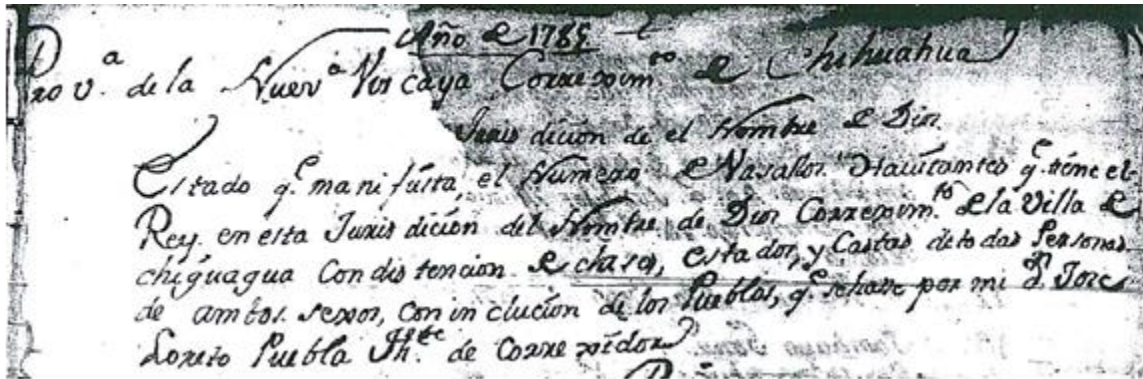 Año de 1785
Prov.ª de la Nuevª Viscaya Correxim.to de Chihuahua
Jurisdicion de el Nombre de Dios
Estado q.e manifiesta, el Numero de Vasallos Havitantes q.e tiene el
Rey en esta Jurisdicion del Nombre de Dios Correxim.to de la Villa de
chiguagua Con distencion de clases, estados, y Castas de todas Personas
de ambos sexos, con inclucion de los Pueblos, q.e sehase por mi Dn Jose
Loreto Puebla Th.te de Correxidor